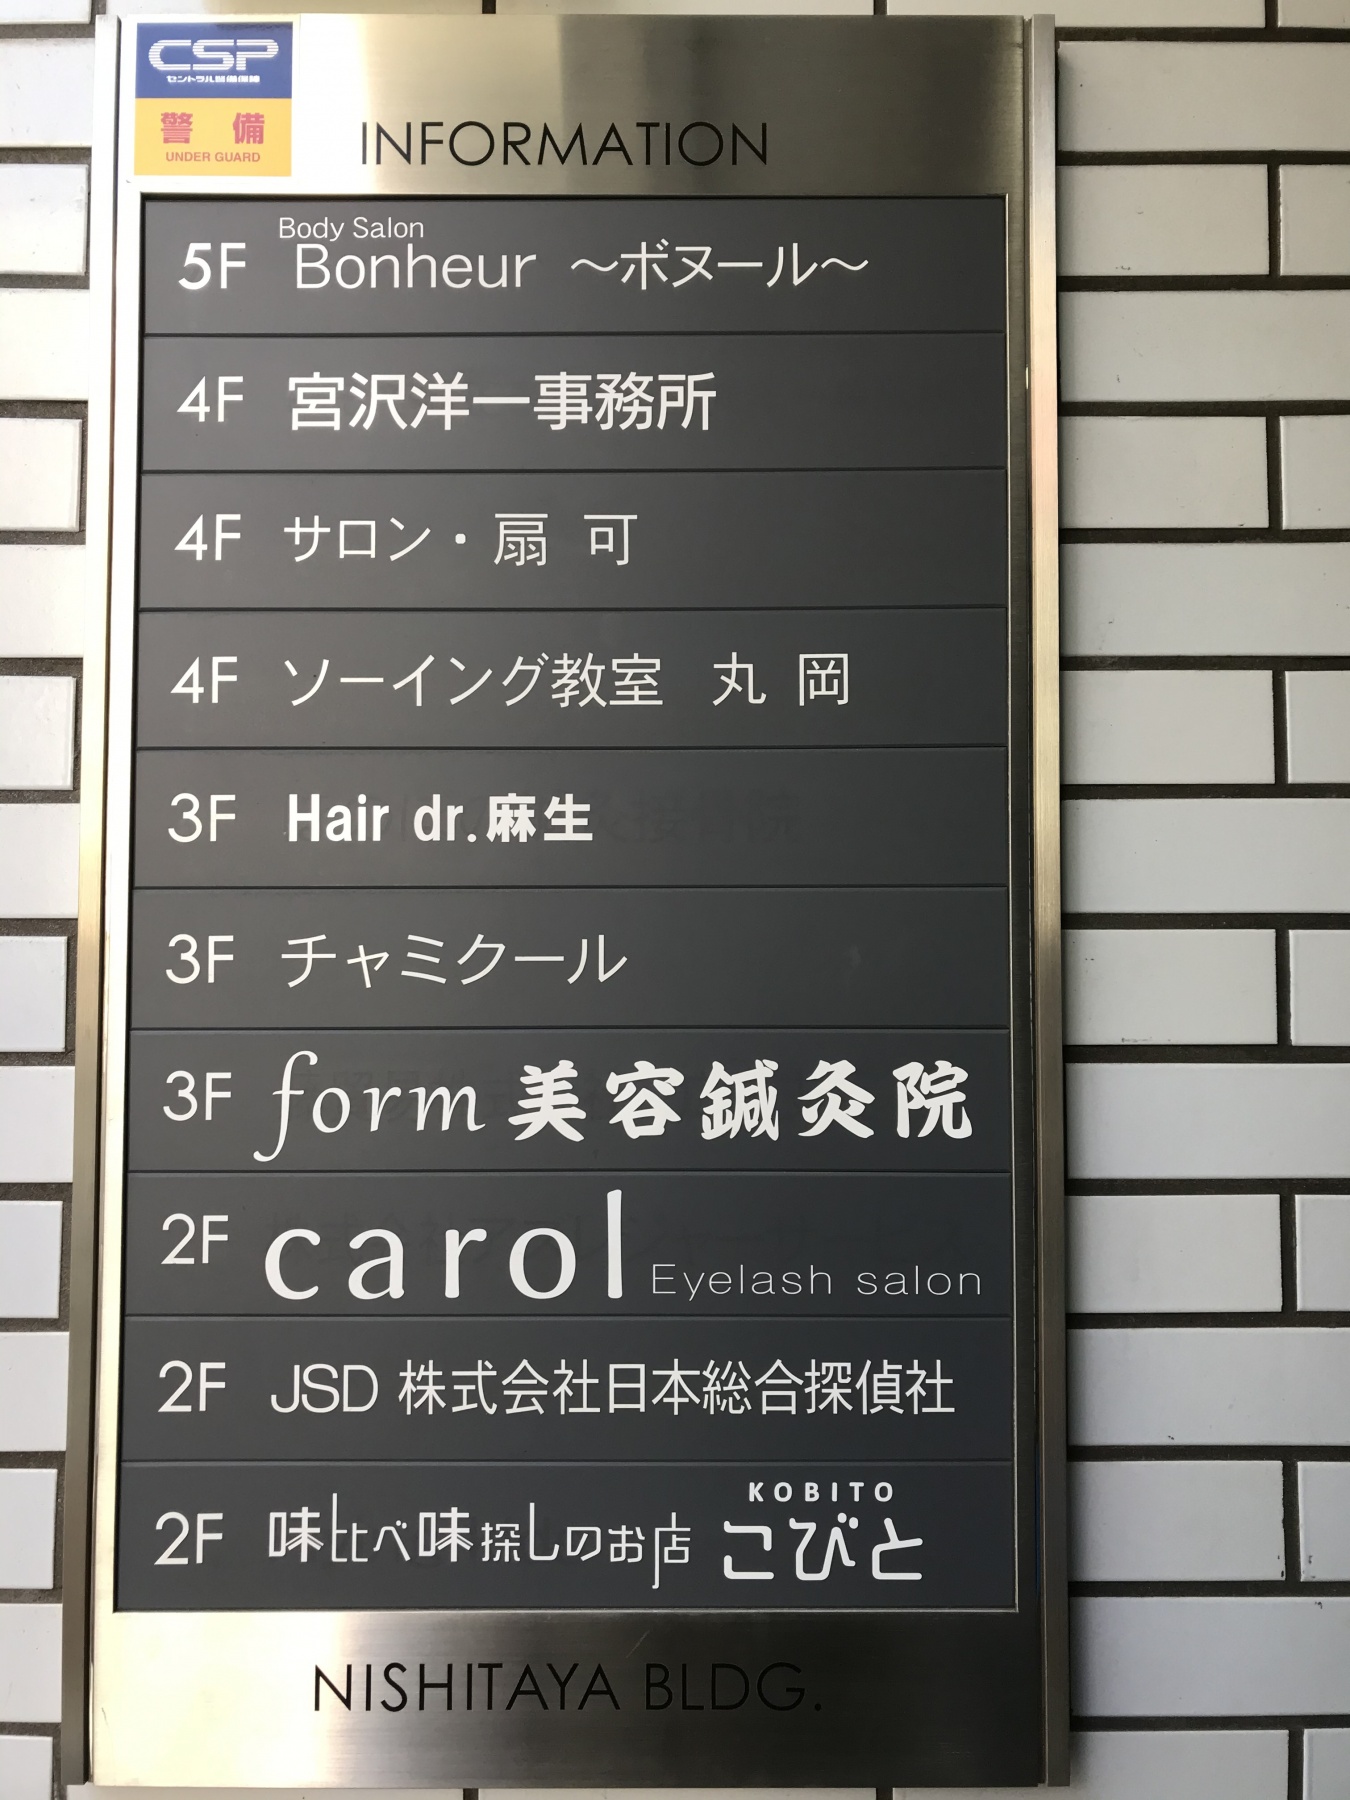 CSP
セントラル警備保障
警備
UNDER GUARD
INFORMATION
Body Salon
5F Bonheur ～ボヌール～
4F 宮沢洋一事務所
4F サロン・扇 可
4F ソーイング教室 丸 岡
3F Hair dr.麻生
3F チャミクール
3F form 美容鍼灸院
2F carol Eyelash salon
2F JSD 株式会社日本総合探偵社
KOBITO
2F 味比べ味探しのお店 こびと
NISHITAYA BLDG.